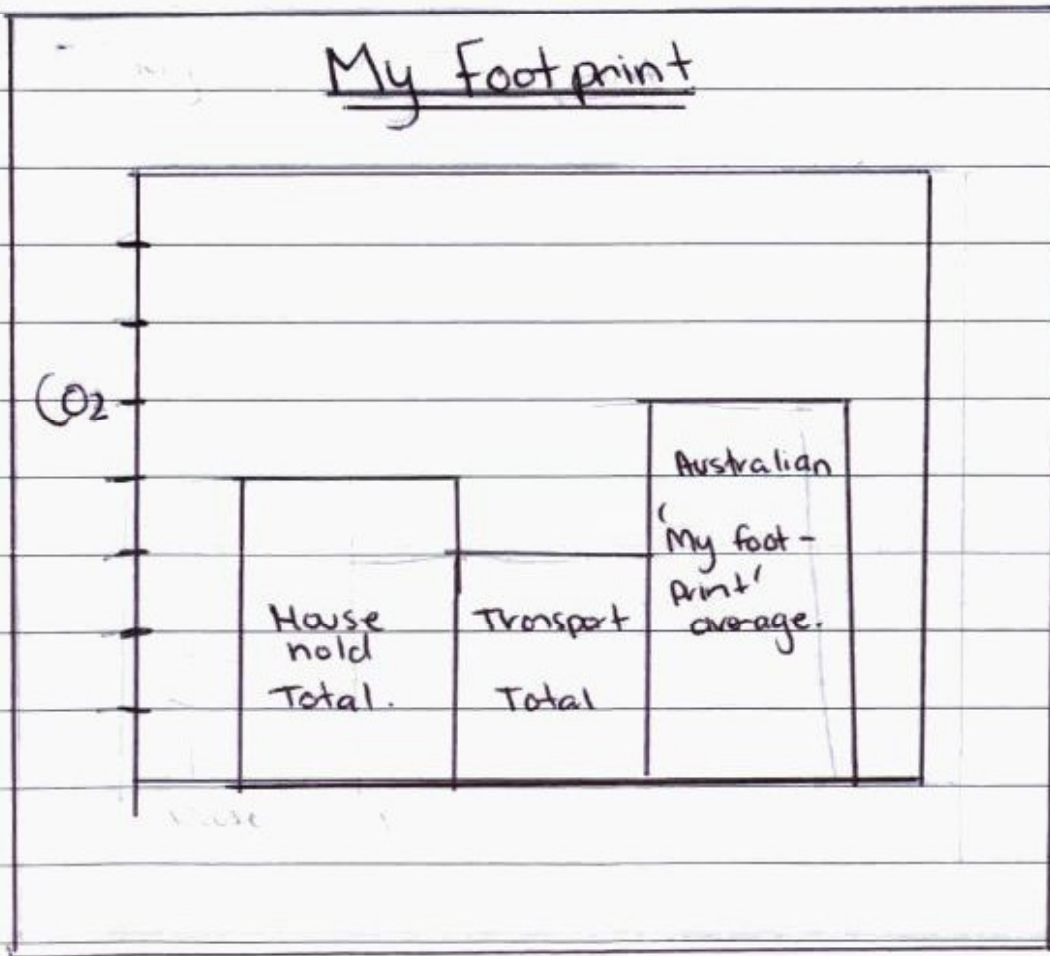 My Footprint
CO2
House
hold
Total.
Transport
Total
Australian
'My foot-
print'
average.